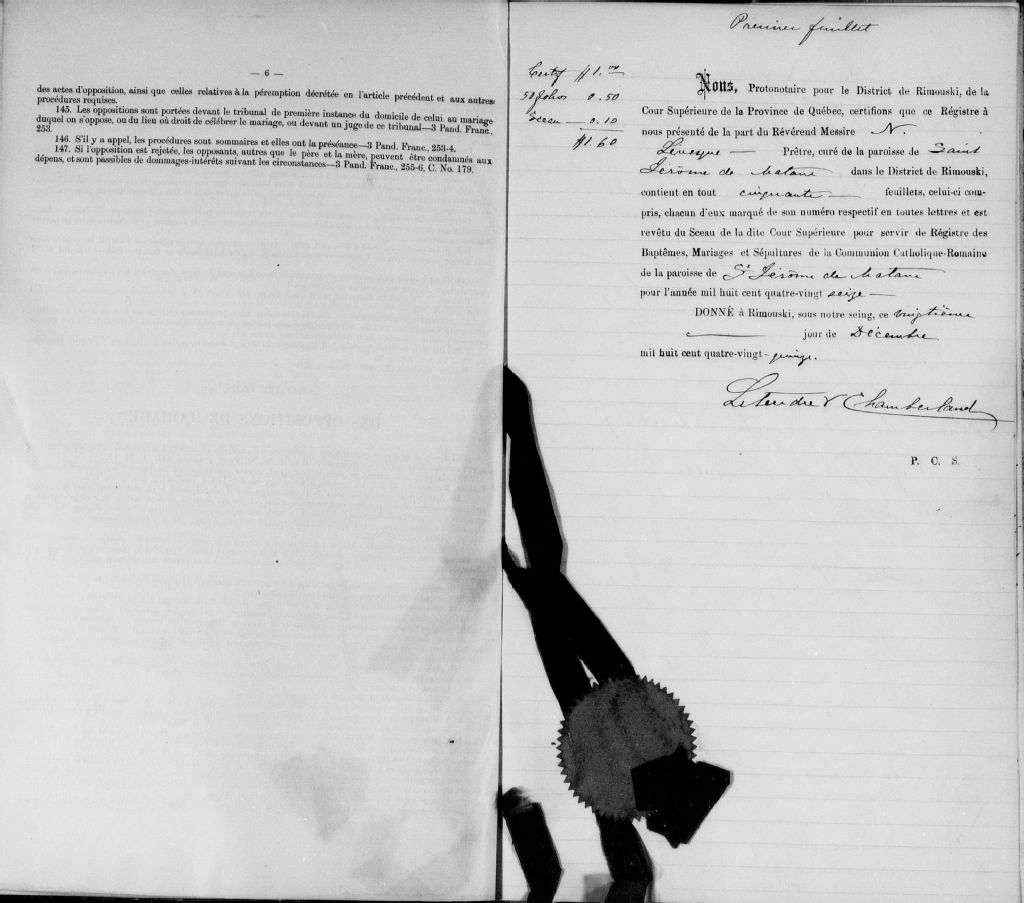 — 6 —
des actes d'opposition, ainsi que celles relatives à la péremption décrétée en l'article précédent et aux autres
procédures requises.
145. Les oppositions sont portées devant le tribunal de première instance du domicile de celui au mariage
duquel on s'oppose, ou du lieu où droit de célébrer le mariage, ou devant un juge de ce tribunal—3 Pand. Franc.,
253.
146. S'il y a appel, les procédures sont sommaires et elles ont la préséance—3 Pand. Franc., 253-4.
147. Si l'opposition est rejetée, les opposants, autres que le père et la mère, peuvent être condamnés aux
dépens, et sont passibles de dommages-intérêts suivant les circonstances—3 Pand. Franc., 255-6, C. No. 179.
Premier feuillet
Certif $1.00
50 folios 0.50
Sceau — 0.10
$1.60
Nous, Protonotaire pour le District de Rimouski, de la
Cour Supérieure de la Province de Québec, certifions que ce Régistre à
nous présenté de la part du Révérend Messire N.
Levesque — Prêtre, curé de la paroisse de Saint
Jérôme de Matane dans le District de Rimouski,
contient en tout cinquante — feuillets, celui-ci com-
pris, chacun d'eux marqué de son numéro respectif en toutes lettres et est
revêtu du Sceau de la dite Cour Supérieure pour servir de Régistre des
Baptêmes, Mariages et Sépultures de la Communion Catholique-Romaine
de la paroisse de St Jérôme de Matane
pour l'année mil huit cent quatre-vingt seize —
DONNÉ à Rimouski, sous notre seing, ce vingtième
— jour de Décembre
mil huit cent quatre-vingt-quinze.
Letendre & Chamberland
P. C. S.